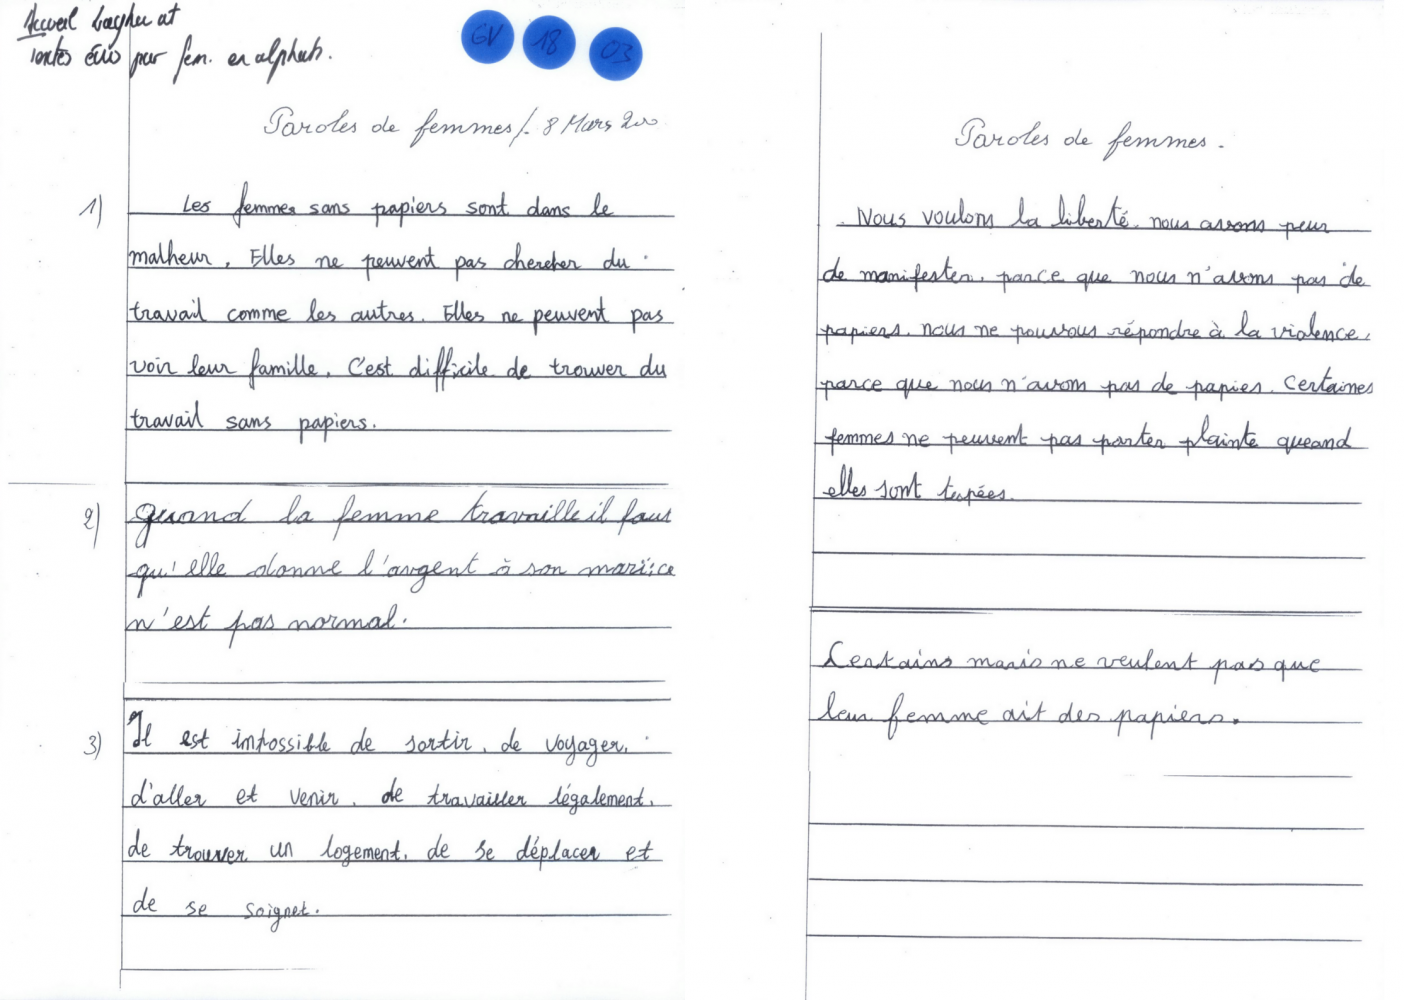 Accueil Laghouat
textes écrits par fem. en alphab.
GV 18 03
Paroles de femmes/. 8 Mars
1) Les femmes sans papiers sont dans le
malheur. Elles ne peuvent pas chercher du
travail comme les autres. Elles ne peuvent pas
voir leur famille. C'est difficile de trouver du
travail sans papiers.
2) Quand la femme travaille il faut
qu'elle donne l'argent à son mari; ce
n'est pas normal.
3) Il est impossible de sortir, de voyager,
d'aller et venir, de travailler légalement,
de trouver un logement, de se déplacer et
de se soignet.
Paroles de femmes.
Nous voulons la liberté. nous avons peur
de manifester. parce que nous n'avons pas de
papiers. nous ne pouvous répondre à la violence.
parce que nous n'avons pas de papies. Certaines
femmes ne peuvent pas porter plainte queand
elles sont tapées.
Certains maris ne veulent pas que
leur femme ait des papiers.